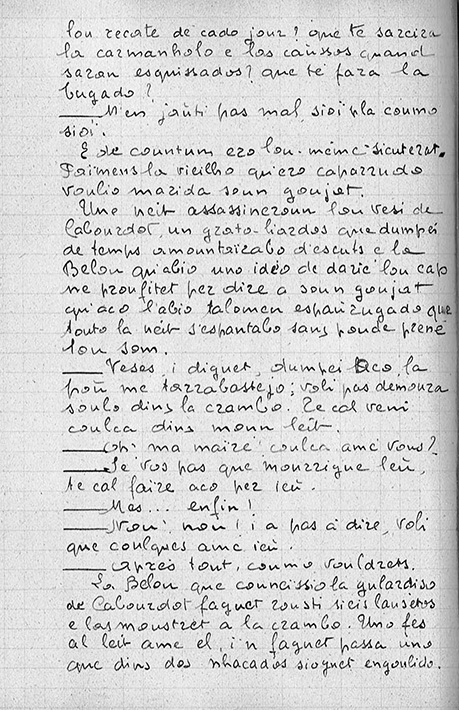 lou recate de cado jour? que te sarcira
la carmanholo e las caussos quand
saran esquissados? que te fara la
bugado?
— M'en jaùti pas mal, sioï pla coumo
sioï.
E de countun ero lou mème sicuterat.
Païmens la vieilho qu'ero caparrudo
voulio marida soun goujat.
Uno neit assassineroun lou vesi de
Cabourdot, un grato-liardos que dumpei
de temps amountaïrabo d'escuts e la
Belou qu'abio uno ideo de darie lou cap
ne proufitet per dire a soun goujat
qu'aco l'abio talomen espaürugado que
touto la neit s'espantabo sans poude prene
lou som.
— Veses, i diguet, dumpei aco, la
poù me tarrabastejo; voli pas demoura
soulo dins la crambo. Te cal veni
coulca dins moun leit.
— Oh! ma maïre! coulca amé vous?
— Se vos pas que mourrigue leù,
te cal faire aco per ieù.
— Mes... enfin!
— Nou! nou! i a pas a dire, voli
que coulques amé ieù.
— Après tout, coumo vouldrets.
La Belou que couneissio la gulardiso
de Cabourdot faguet rousti sieis lausetos
e las moustret a la crambo. Uno fes
al leit ame el, i'n faguet passa uno
que dins dos nhacados sioguet engoulido.